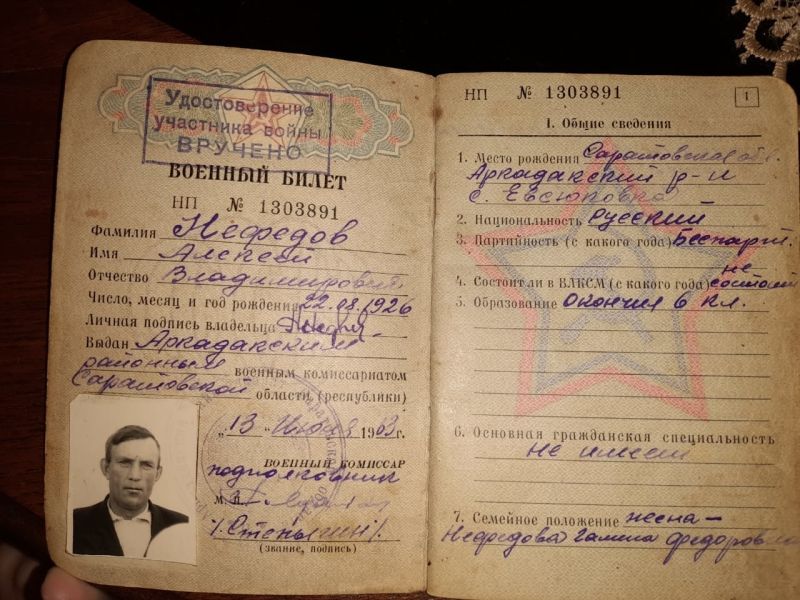 Удостоверение
участника войны
ВРУЧЕНО
ВОЕННЫЙ БИЛЕТ
НП № 1303891
Фамилия Нефедов
Имя Алексей
Отчество Владимирович
Число, месяц и год рождения 22.08.1926
Личная подпись владельца
Выдан Аркадакским
районным военным комиссариатом
Саратовской области (республики)
"13" июля 1963г.
ВОЕННЫЙ КОМИССАР
подполковник
М. П.
(звание, подпись)
НП № 1303891 1
I. Общие сведения
1. Место рождения Саратовская обл.
Аркадакский р-н
с. Евсюковка
2. Национальность Русский
3. Партийность (с какого года) Беспарт.
4. Состоял ли в ВЛКСМ (с какого года) не
состоял
5. Образование Окончил 6 кл.
6. Основная гражданская специальность
не имеет
7. Семейное положение жена-
Нефедова Галина Федоровна